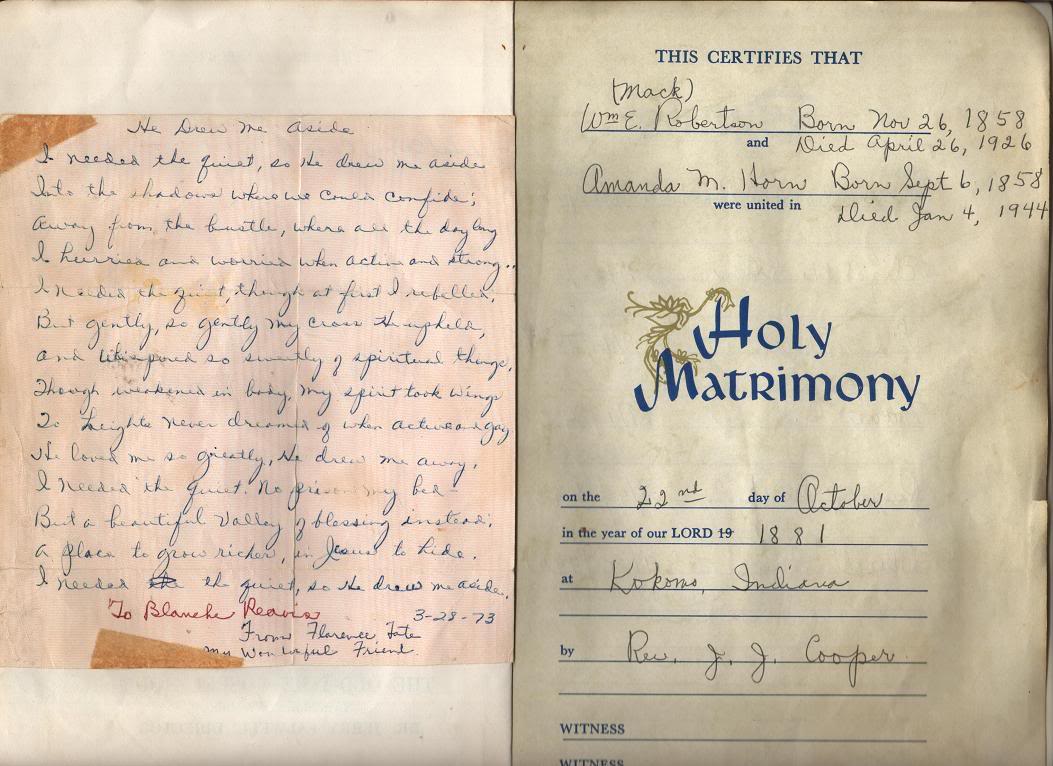 He Drew Me Aside
I needed the quiet, so He drew me aside
Into the shadows where we could confide;
Away from the bustle, where all the day long
I hurried and worried when active and strong..
I needed the quiet, though at first I rebelled,
But gently, so gently my cross He upheld,
And whispered so sweetly of spiritual things,
Though weakened in body, my spirit took wings
To heights never dreamed of when active and gay
He loved me so greatly, He drew me away.
I needed the quiet. No prison my bed -
But a beautiful Valley of blessing instead;
A place to grow richer, in Jesus to hide.
I needed the quiet, so He drew me aside.
To Blanche Reavis
3-28-73
From Florence Tate
My Wonderful Friend.
THIS CERTIFIES THAT
(Mack)
Wm E. Robertson Born Nov 26, 1858
and Died April 26, 1926
Amanda M. Horn Born Sept 6, 1858
were united in Died Jan 4, 1944
HOLY
MATRIMONY
on the 22nd day of October
in the year of our LORD 19 1881
at Kokomo, Indiana
by Rev. J. J. Cooper
WITNESS
WITNESS